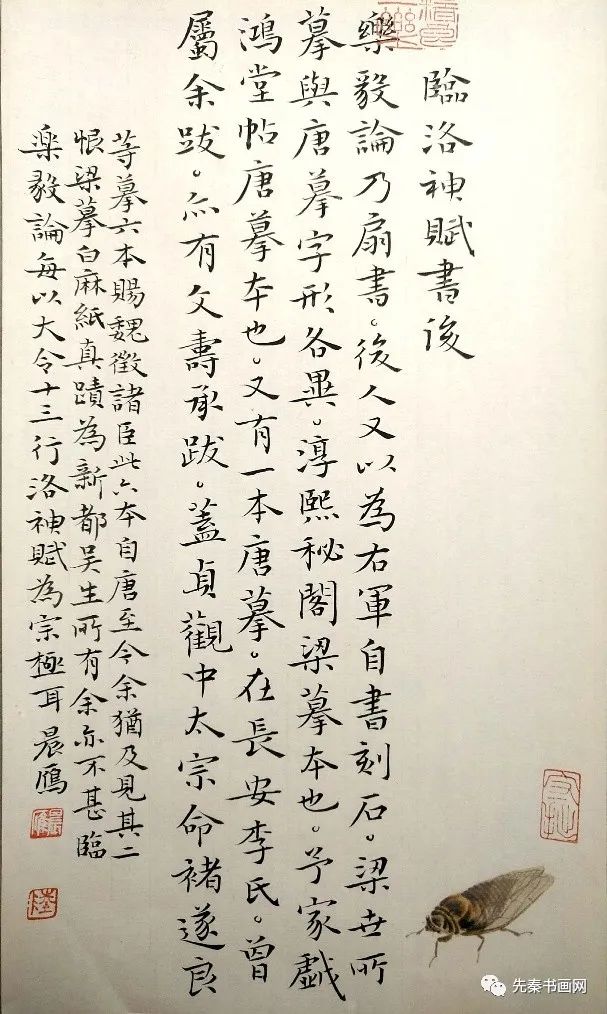 臨洛神賦書後
樂毅論乃扇書。後人又以為右軍自書刻石。梁世所
摹與唐摹字形各異。淳熙秘閣梁摹本也。予家戲
鴻堂帖唐摹本也。又有一本唐摹。在長安李氏。曾
屬余跋。亦有文壽承跋。蓋貞觀中太宗命褚遂良
等摹六本賜魏徵諸臣此六本自唐至今余猶及見其二
恨梁摹白麻紙真蹟為新都吳生所有余亦不甚臨
樂毅論每以大令十三行洛神賦為宗極耳晨鴈
先秦书画网